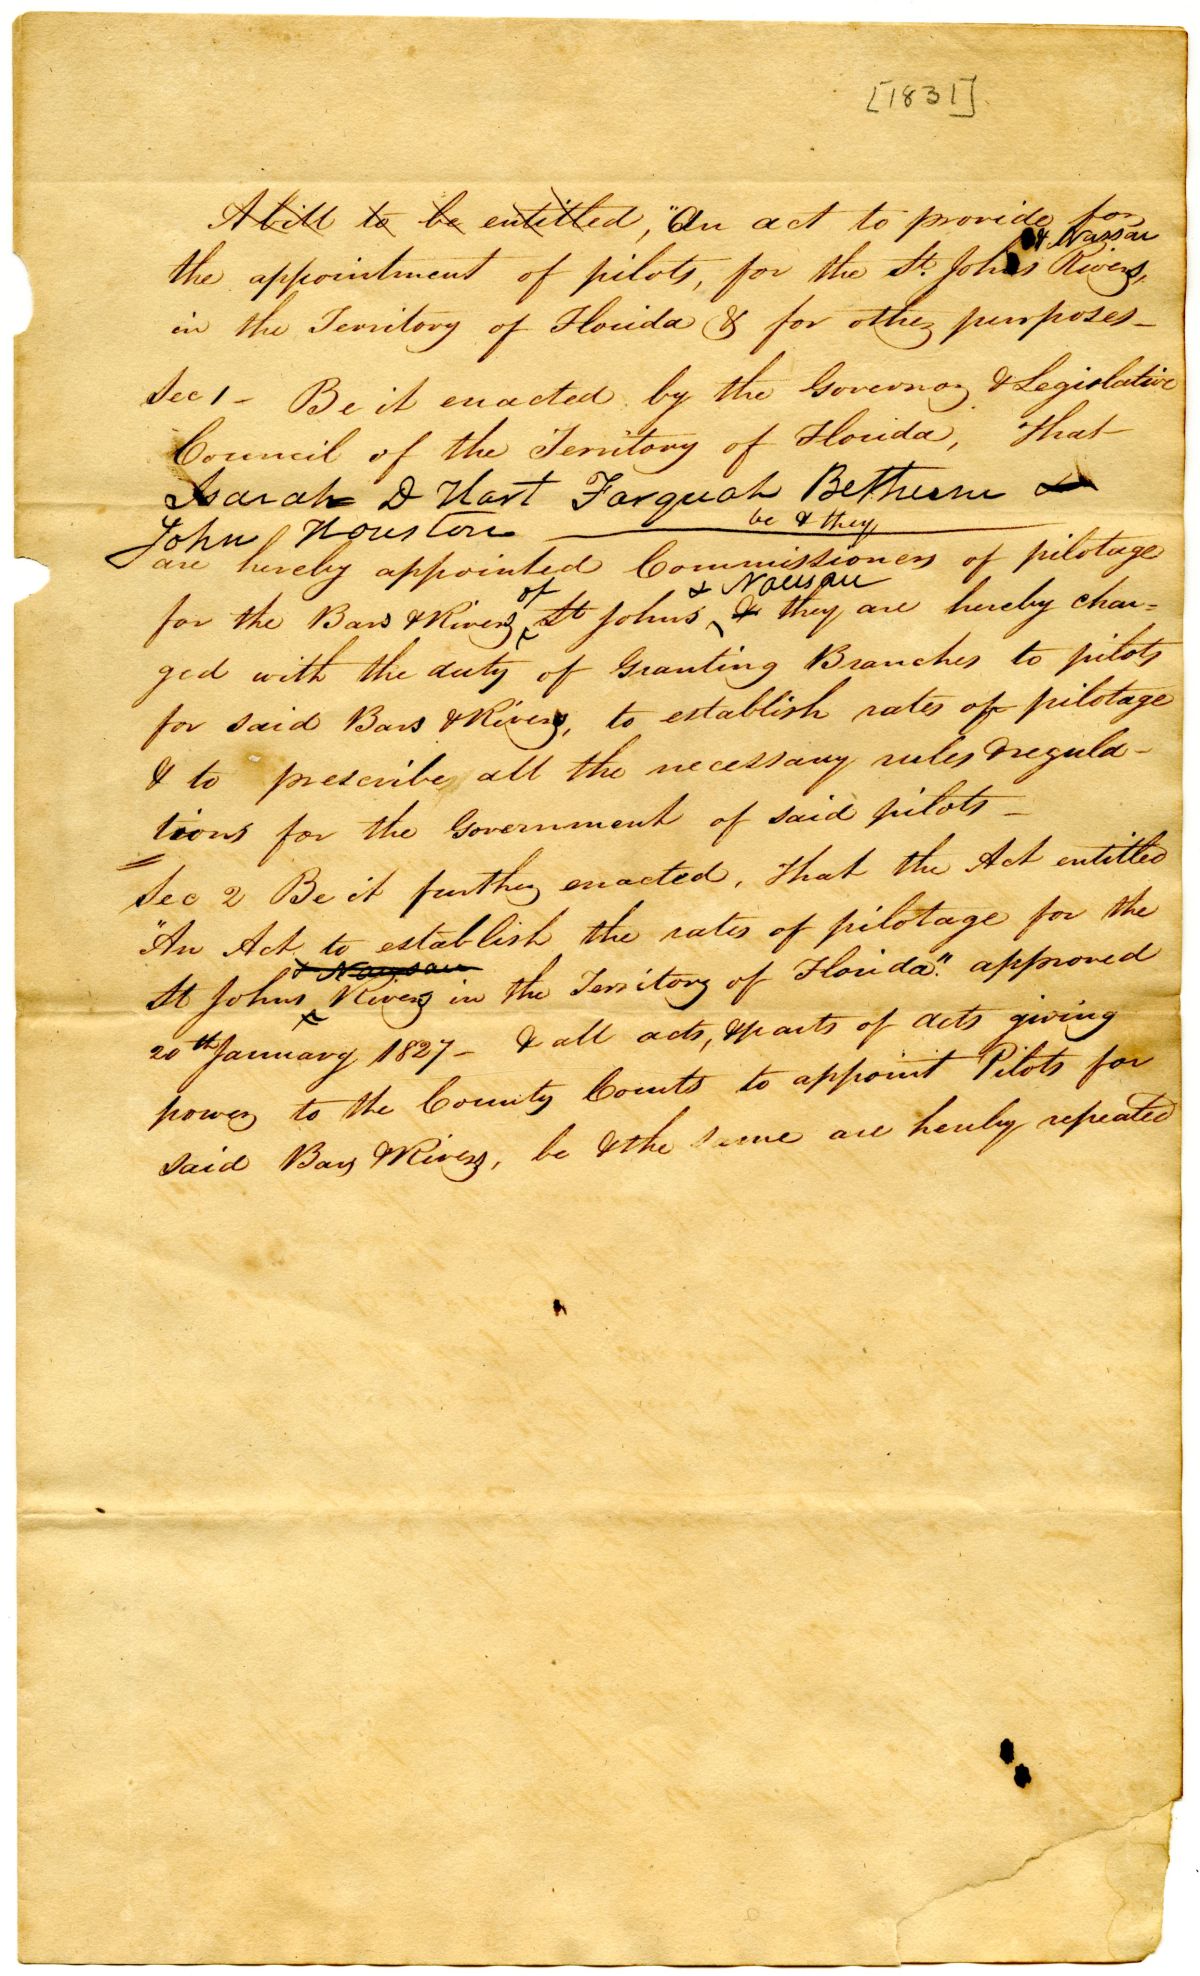 [1831]
A bill to be entitled, "An act to provide for
& Nassau
the appointment of pilots, for the St. Johns Rivers,
in the Territory of Florida & for other purposes-
Sec 1- Be it enacted by the Governor & Legislative
Council of the Territory of Florida, That
Isarah D Hart Farquah Bethune &
John Houston
be & they
are hereby appointed Commissioners of pilotage
of & Nassau
for the Bars & Rivers St Johns, & they are hereby char=
ged with the duty of Granting Branches to pilots
for said Bars & Rivers, to establish rates of pilotage
& to prescribe all the necessary rules & regula-
tions for the Government of said pilots-
Sec 2 Be it further enacted, That the Act entitled
"An Act to establish the rates of pilotage for the
& Nassau
St Johns Rivers in the Territory of Florida". approved
20th January 1827- & all acts, & parts of acts giving
power to the County Courts to appoint Pilots for
said Bars & Rivers, be & the same are hereby repealed